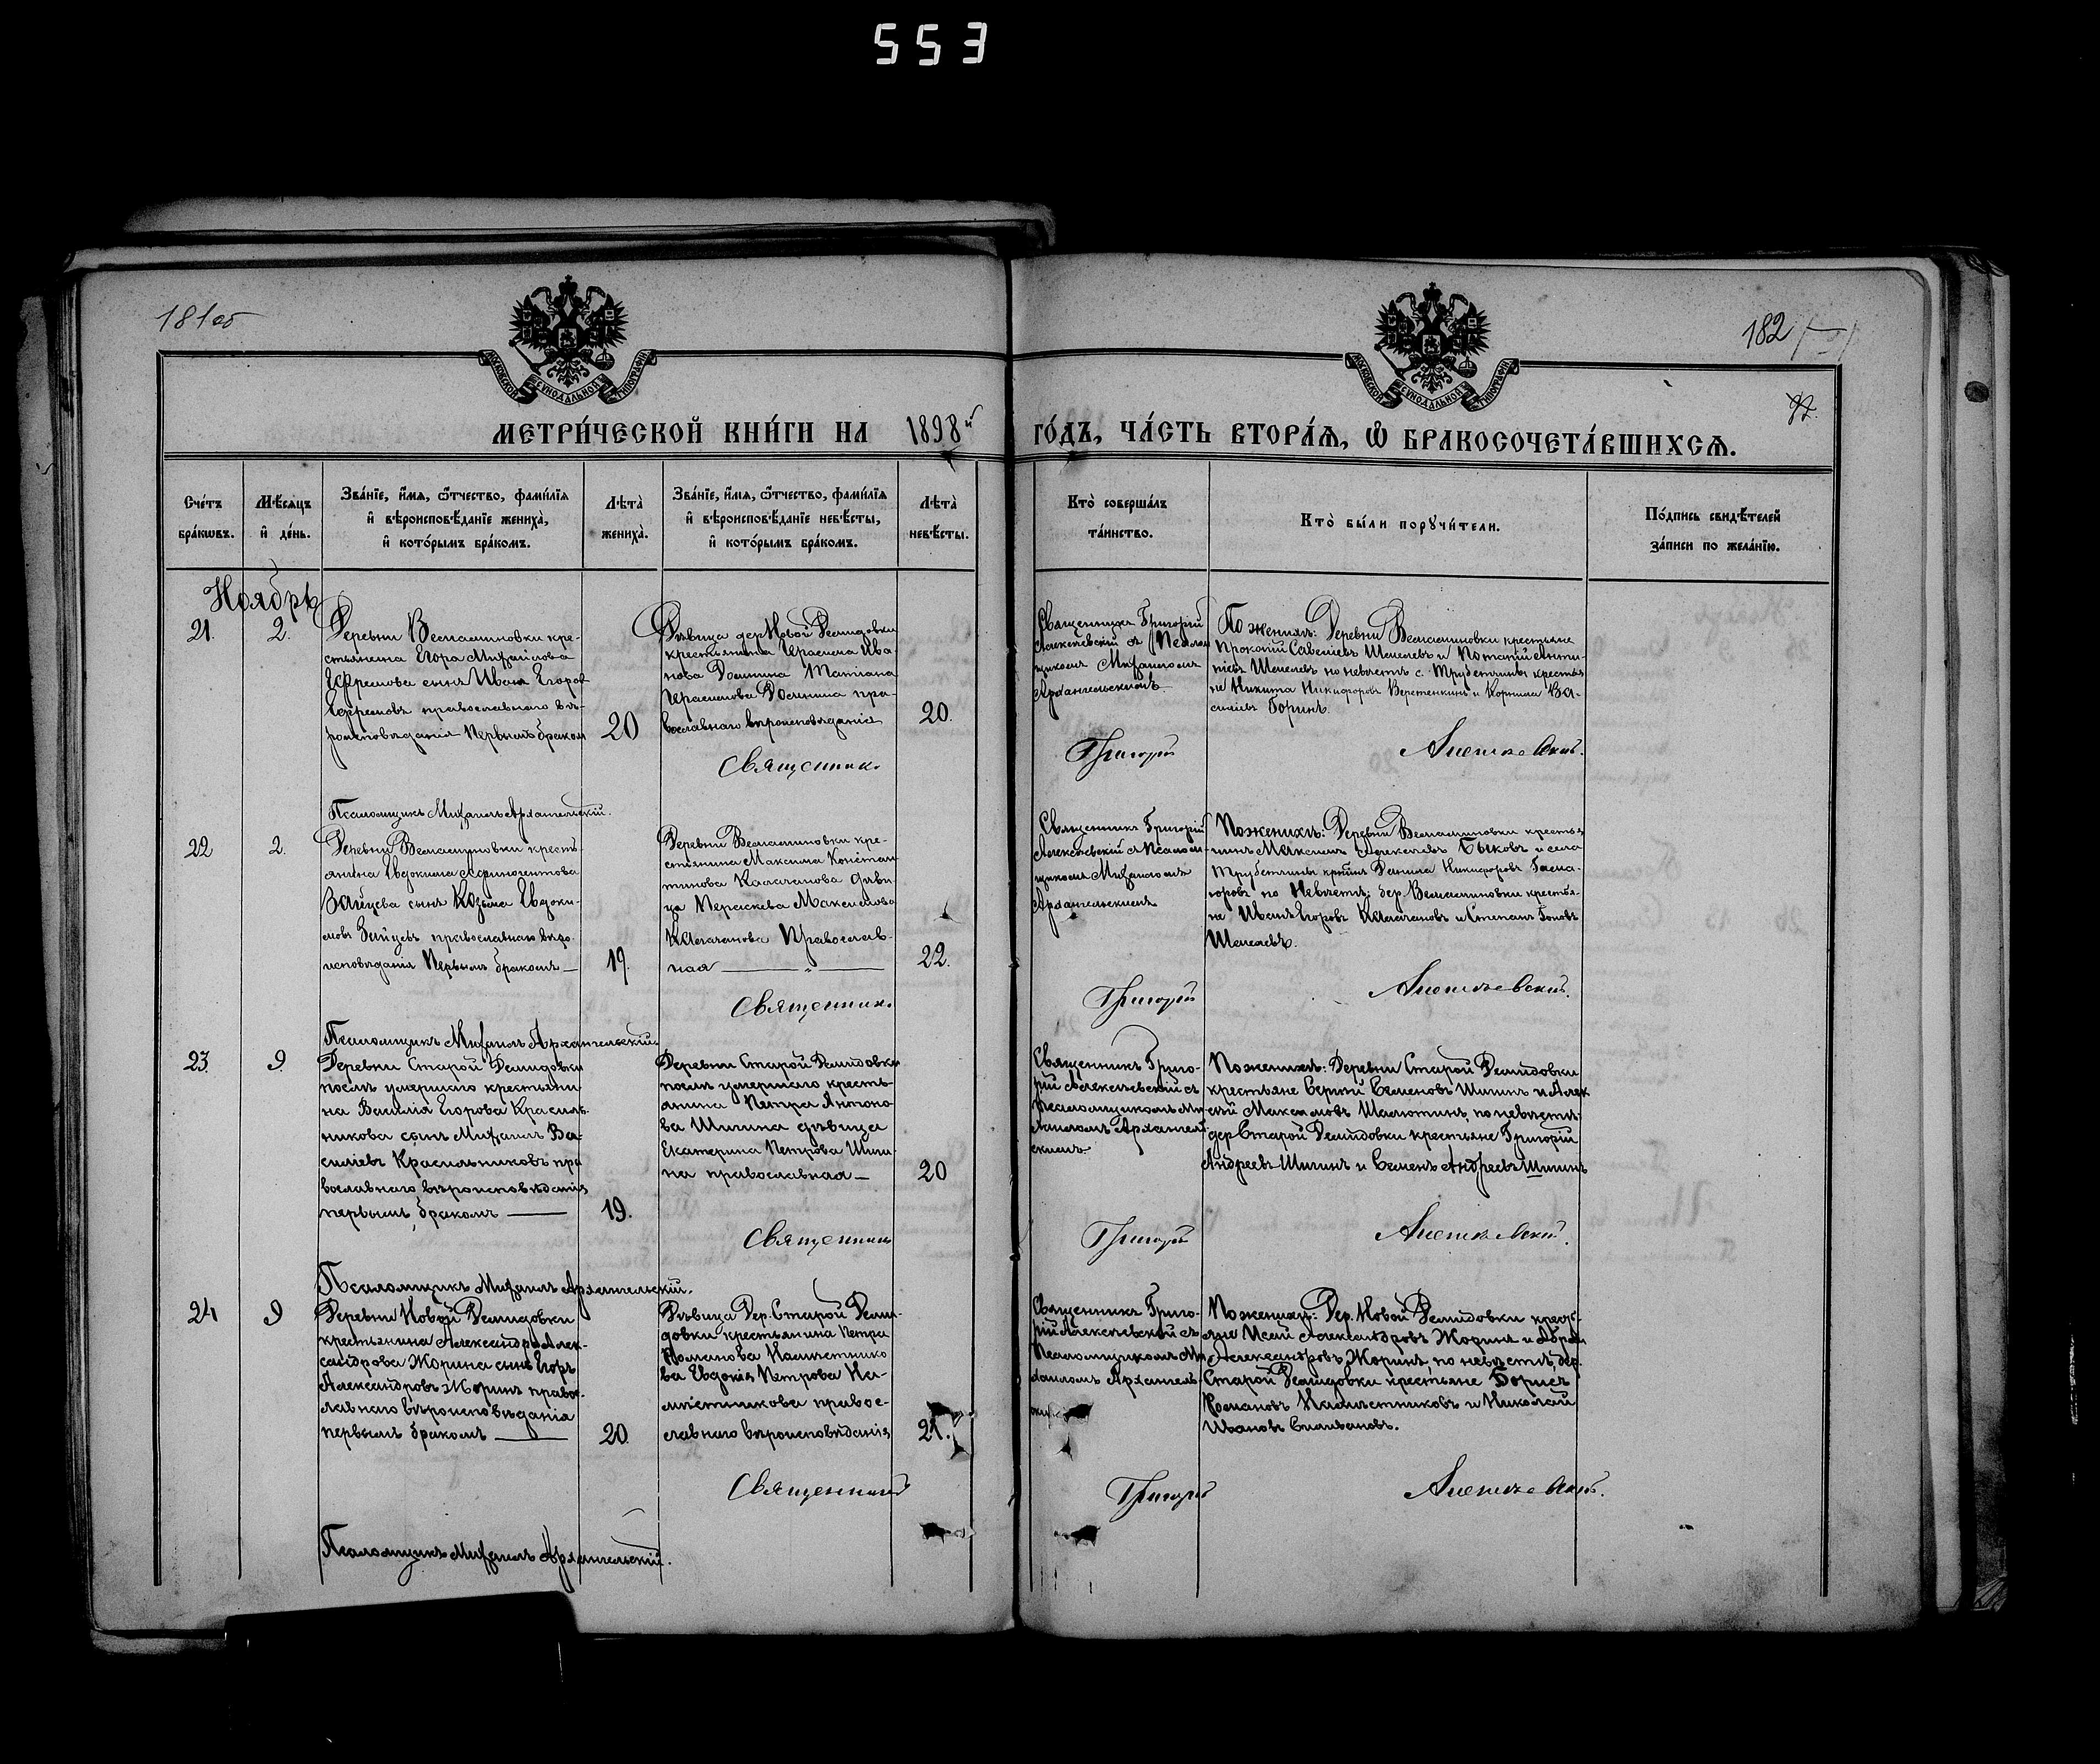 553
181об
182
МОСКОВСКОЙ СѴНОДАЛЬНОЙ ТИПОГРАФІИ
МОСКОВСКОЙ СѴНОДАЛЬНОЙ ТИПОГРАФІИ
МЕТРИ́ЧЕСКОЙ КНИ́ГИ НА 1898й ГО́ДЪ, ЧА́СТЬ ВТОРА́Ѧ, Ѿ БРАКОСОЧЕТА́ВШИХСѦ.
Сче́тъ бра́кѡвъ.
Мѣ́сѧцъ и҆ де́нь.
Зва́нїе, и҆́мѧ, ѻ҆́тчество, фами́лїѧ и҆ вѣроисповѣ́данїе жениха̀, и҆ кото́рымъ бра́комъ.
Лѣта̀ жениха̀.
Зва́нїе, и҆́мѧ, ѻ҆́тчество, фами́лїѧ и҆ вѣроисповѣ́данїе невѣ́сты, и҆ кото́рымъ бра́комъ.
Лѣта̀ невѣ́сты.
Кто̀ соверша́лъ та́инство.
Кто̀ бы́ли порꙋчи́тели.
По́дпись свидѣ́телей за́писи по жела́нїю.
Ноябрь
21.
2.
Деревни Вельяминовки кре-
стьянина Егора Михайлова
Ефремова сынъ Иванъ Егоровъ
Ефремовъ православнаго вѣ-
роисповѣданія Первымъ бракомъ
20
Дѣвица дер Новой Демидовки
крестьянина Герасима Ива-
нова Домнина Матіана
Герасимова Домнина пра-
вославнаго вѣроисповѣданія
20.
Священникъ Григорій
Алексѣевскій съ Псалом
щикомъ Михаиломъ
Архангельскимъ
По женихѣ: Деревни Вельяминовки крестьяне
Прокопій Савельевъ Шмелевъ и Потапій Анти-
піевъ Шмелевъ по невѣстѣ с. Трубетчины крестья
не Никита Никифоровъ Веретенкинъ и Корнилій Ва-
сильевъ Горинъ.
Священникъ Григорій Алексѣевскій.
Псаломщикъ Михаилъ Архангельскій.
22
2.
Деревни Вельяминовки кресть-
янина Евдокима Афиногентова
Зайцева сынъ Козьма Евдоки-
мовъ Зайцевъ православнаго вѣро-
исповѣданія Первымъ бракомъ
19.
Деревни Вельяминовки кре-
стьянина Максима Констан
тинова Калачанова дѣви-
ца Параскева Максимова
Калачанова Православ-
ная
22.
Священникъ Григорій
Алексѣевскій съ Псалом
щикомъ Михаиломъ
Архангельскимъ
По женихѣ: Деревни Вельяминовки крестья
нинъ Максимъ Алексѣевъ Быковъ и села
Трубетчины кр-нинъ Даніилъ Никифоровъ
по Невѣстѣ: дер. Вельяминовки крестья-
не Иванъ Егоровъ Калачановъ и Степанъ
Шмелевъ.
Священникъ Григорій Алексѣевскій.
Псаломщикъ Михаилъ Архангельскій.
23.
9.
Деревни Старой Демидовки
послѣ умершаго крестьяни
на Василія Егорова Красиль-
никова сынъ Михаилъ Ва-
сильевъ Красильниковъ пра
вославнаго вѣроисповѣданія
первымъ бракомъ
19.
Деревни Старой Демидовки
послѣ умершаго кресть-
янина Петра Антоно-
ва Шигина дѣвица
Екатерина Петрова Шиги-
на православная
20
Священникъ Григо-
рій Алексѣевскій съ
Псаломщикомъ Ми
хаиломъ Архангель
скимъ
По женихѣ: Деревни Старой Демидовки
крестьяне Сергій Семеновъ Шигинъ и Алек
сѣй Максимовъ Шалотинъ, по невѣстѣ
дер Старой Демидовки крестьяне Григорій
Андреевъ Шигинъ и Семенъ Андреевъ Шигинъ
Священникъ Григорій Алексѣевскій.
Псаломщикъ Михаилъ Архангельскій.
24
9
Деревни Новой Демидовки
крестьянина Александра Алек-
сандрова Жорина сынъ Егоръ
Александровъ Жоринъ право-
славнаго вѣроисповѣданія
первымъ бракомъ
20.
Дѣвица Дер. Старой Деми-
довки крестьянина Петра
Романова Намѣстнико
ва Евдокія Петрова На-
мѣстникова право-
славнаго вѣроисповѣданія
21.
Священникъ Григо-
рій Алексѣевскій съ
Псаломщикомъ Ми
хаиломъ Архангель-
По женихѣ: Дер. Новой Демидовки кресть-
яне Исай Александровъ Жоринъ и Абрам
Александровъ Жоринъ, по невѣстѣ, дер.
Старой Демидовки крестьяне Борисъ
Романовъ Намѣстниковъ и Николай
Ивановъ Силивановъ.
Священникъ Григорій Алексѣевскій.
Псаломщикъ Михаилъ Архангельскій.